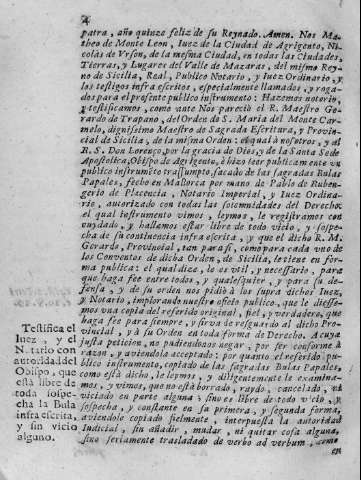 4
patra, año quinze feliz de su Reynado. Amen. Nos Ma-
theo de Monte Leon, Iuez de la Ciudad de Agrigento, Ni-
colàs de Vrson, de la mesma Ciudad, en todas las Ciudades,
Tierras, y Lugares del Valle de Mazaras, del mismo Rey-
no de Sicilia, Real, Publico Notario, y Iuez Ordinario, y
los testigos infra escritos, especialmente llamados, y roga-
dos para el presente publico instrumento: Hazemos notorio,
y testificamos, como ante Nos pareciò el R. Maestro Ge-
rardo de Trapano, del Orden de S. Maria del Monte Car-
melo, dignissimo Maestro de Sagrada Escritura, y Provin-
cial de Sicilia, de la misma Orden: el qual à nosotros, y al
R. S. Don Lorenço, por la gracia de Dios, y de la Santa Sede
Apostolica, Obispo de Agrigento, è hizo leer publicamente vn
publico instrumẽto trassumpto, sacado de las sagradas Bulas
Papales, fecho en Mallorca por mano de Pablo de Ruben-
gerio de Placencia, Notario Imperial, y Iuez Ordina-
rio, autorizado con todas las solemnidades del Derecho:
el qual instrumento vimos, leymos, le registramos con
cuydado, y hallamos estar libre de todo vicio, y sospe-
cha de su continencia infra escrita, y que el dicho R. M.
Gerardo, Provincial, tan para sì, como para cada vno de
los Conventos de dicha Orden, de Sicilia, le tiene en for-
ma publica: el qual dize, le es vtil, y necessario, para
que haga fee entre todos, y qualesquier, y para su de-
fensa, y de su orden nos pidiò à los supra dichos Iuez,
y Notario, implorando nuestro oficio publico, que le diesse-
mos vna copia del referido original, fiel, y verdadero, que
haga fee para siempre, y sirva de resguardo al dicho Pro-
vincial, y à su Orden en toda forma de Derecho. A cuya
justa peticion, no pudiendonos negar, por ser conforme à
razon, y aviendola acceptado: por quanto el referido pu-
blico instrumento, copiado de las sagradas Bulas Papales,
como està dicho, le leymos, y diligentemente le examina-
mos, y vimos, que no està borrado, raydo, cancelado, ni
viciado en parte alguna: sino es libre de todo vicio, y
sospecha, y constante en su primera, y segunda forma,
aviendole copiado fielmente, interpuesta la autoridad
Iudicial, sin añadir, mudar, ni quitar cosa alguna,
sino seriamente trasladado de verbo ad verbum, como
en
Testifica el
Iuez, y el
Notario con
autoridad del
Obispo, que
està libre de
toda sospe-
cha la Bula
infra escrita,
y sin vicio
alguno.